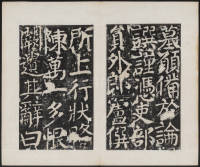 墓願備於論
譔謹憑吏部
員外郎盧僎
所上行狀
陳萬一多恨
闕遺其辭曰